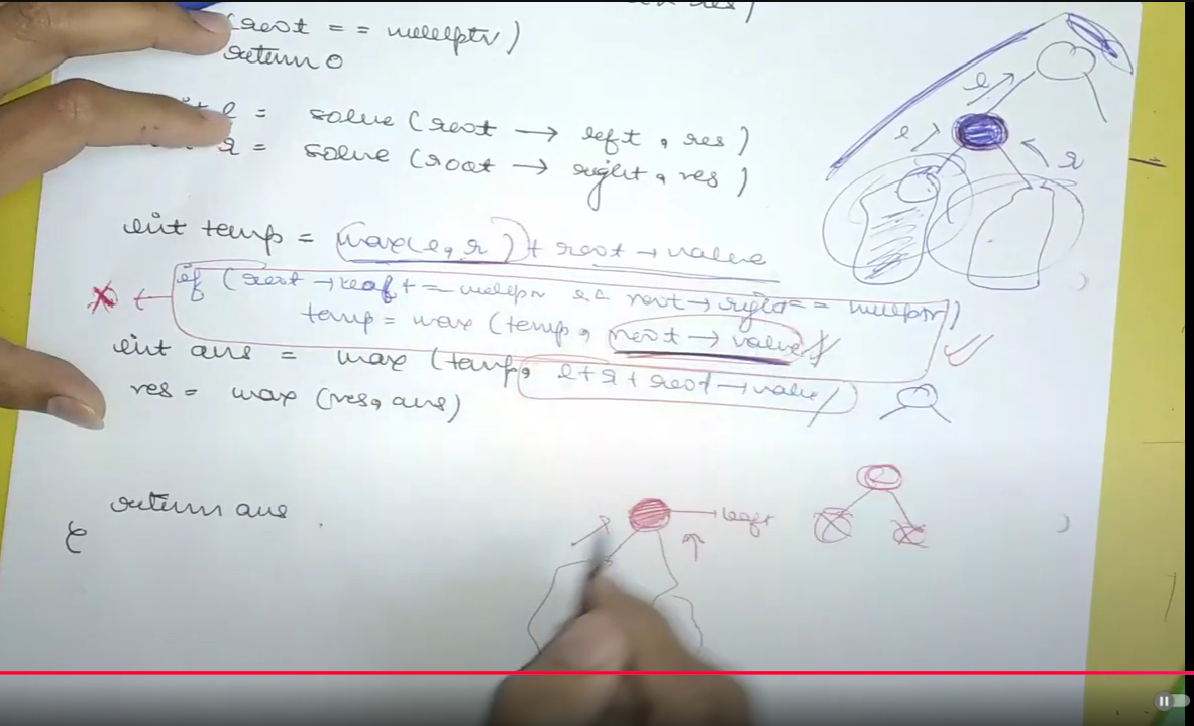 (root == nullptr)
return 0
l = solve (root → left, res)
r = solve (root → right, res)
int temp = max(l, r) + root → value
if (root → leaft == nullptr && root → right == nullptr)
temp = max (temp, root → value)
int ans = max (temp, l + r + root → value)
res = max (res, ans)
return ans
l
l
r
leaf